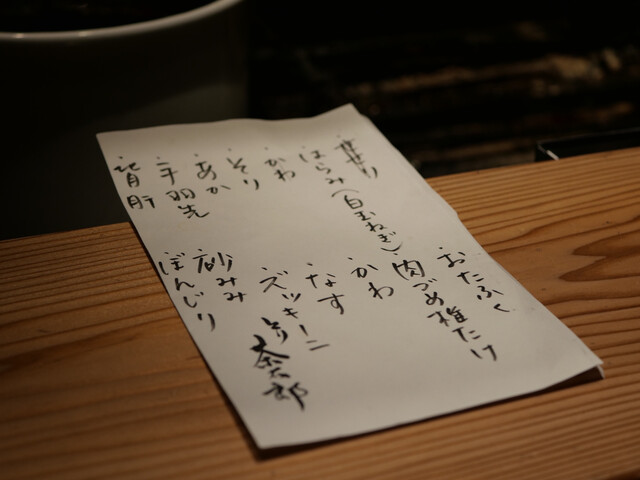 せせり
はらみ(白玉ねぎ)
かわ
そり
あか
手羽先
背肝
おたふく
肉づめ椎たけ
かわ
なす
ズッキーニ
砂みみ
ぼんじり
とり茶太郎